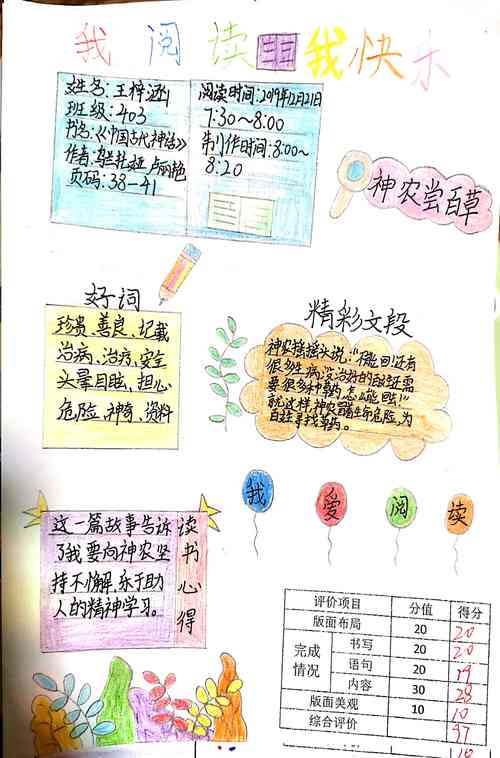 我阅读我快木
姓名:王梓涵
班级:403
书名:《中国古代神话》
作者:乌兰托娅 卢丽艳
页码:38—41
阅读时间:2019年12月21日
7:30~8:00
制作时间:8:00~
8:20
神农尝百草
好词
珍贵、善良、记载
治病、治疗、安全
头晕目眩、担心
危险、神奇、资料
精彩文段
神农摇摇头说:"不能回!还有
很多生病没治好的百姓还需
要很多种草药,怎么能回!"
就这样,神农冒着生命危险,为
百姓寻找草药。
我爱阅读
这一篇故事告诉
了我要向神农坚
持不懈、乐于助
人的精神学习。
读书心得
评价项目 分值 得分
版面布局 20 20
完成情况 书写 20 20
语句 20 19
内容 30 28
版面美观 10 10
综合评价 97
10